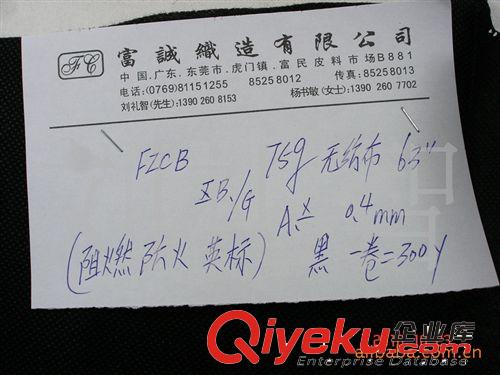 FC
富誠織造有限公司
中国.广东.东莞市.虎门镇.富民皮料市场B881
电话:(0769)81151255 85258012 传真:85258013
刘礼智(先生):1390 260 8153 杨书敏(女士):1390 260 7702
FZCB 75g 无纺布 63"
A.X 0.4mm
(阻燃 防火 英标) 黑 一卷=300Y
企业库
Qiyeku.com
Enterprise Database
alibaba.com.cn